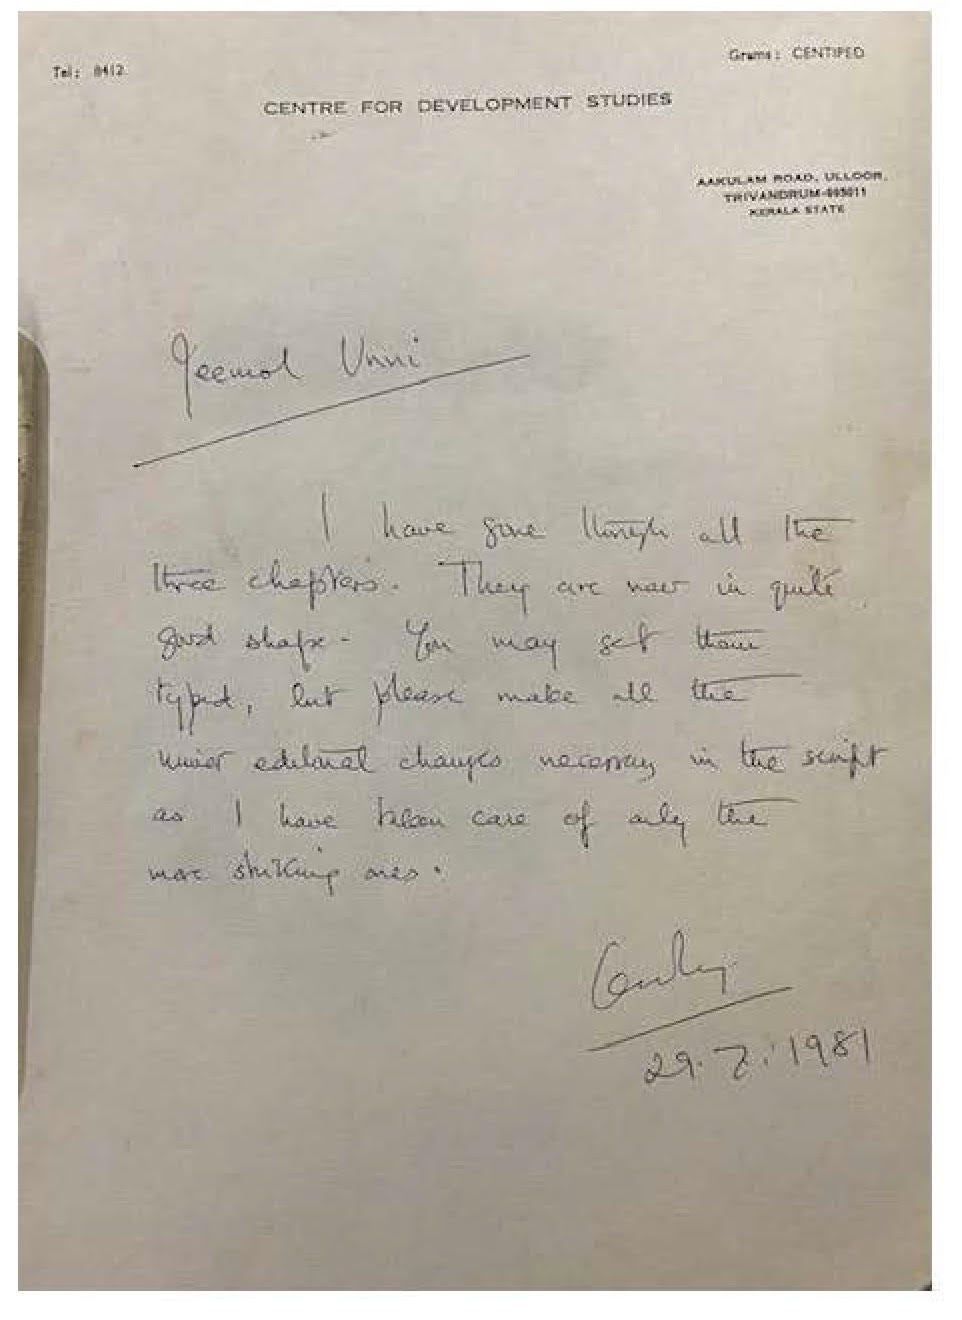 Tel: 8412
Grams: CENTIPED
CENTRE FOR DEVELOPMENT STUDIES
AAKULAM ROAD, ULLOOR,
TRIVANDRUM-695011
KERALA STATE
Jeemol Unni
I have gone through all the
three chapters. They are now in quite
good shape. You may get them
typed, but please make all the
minor editorial changes necessary in the script
as I have taken care of only the
more striking ones.
29.7.1981